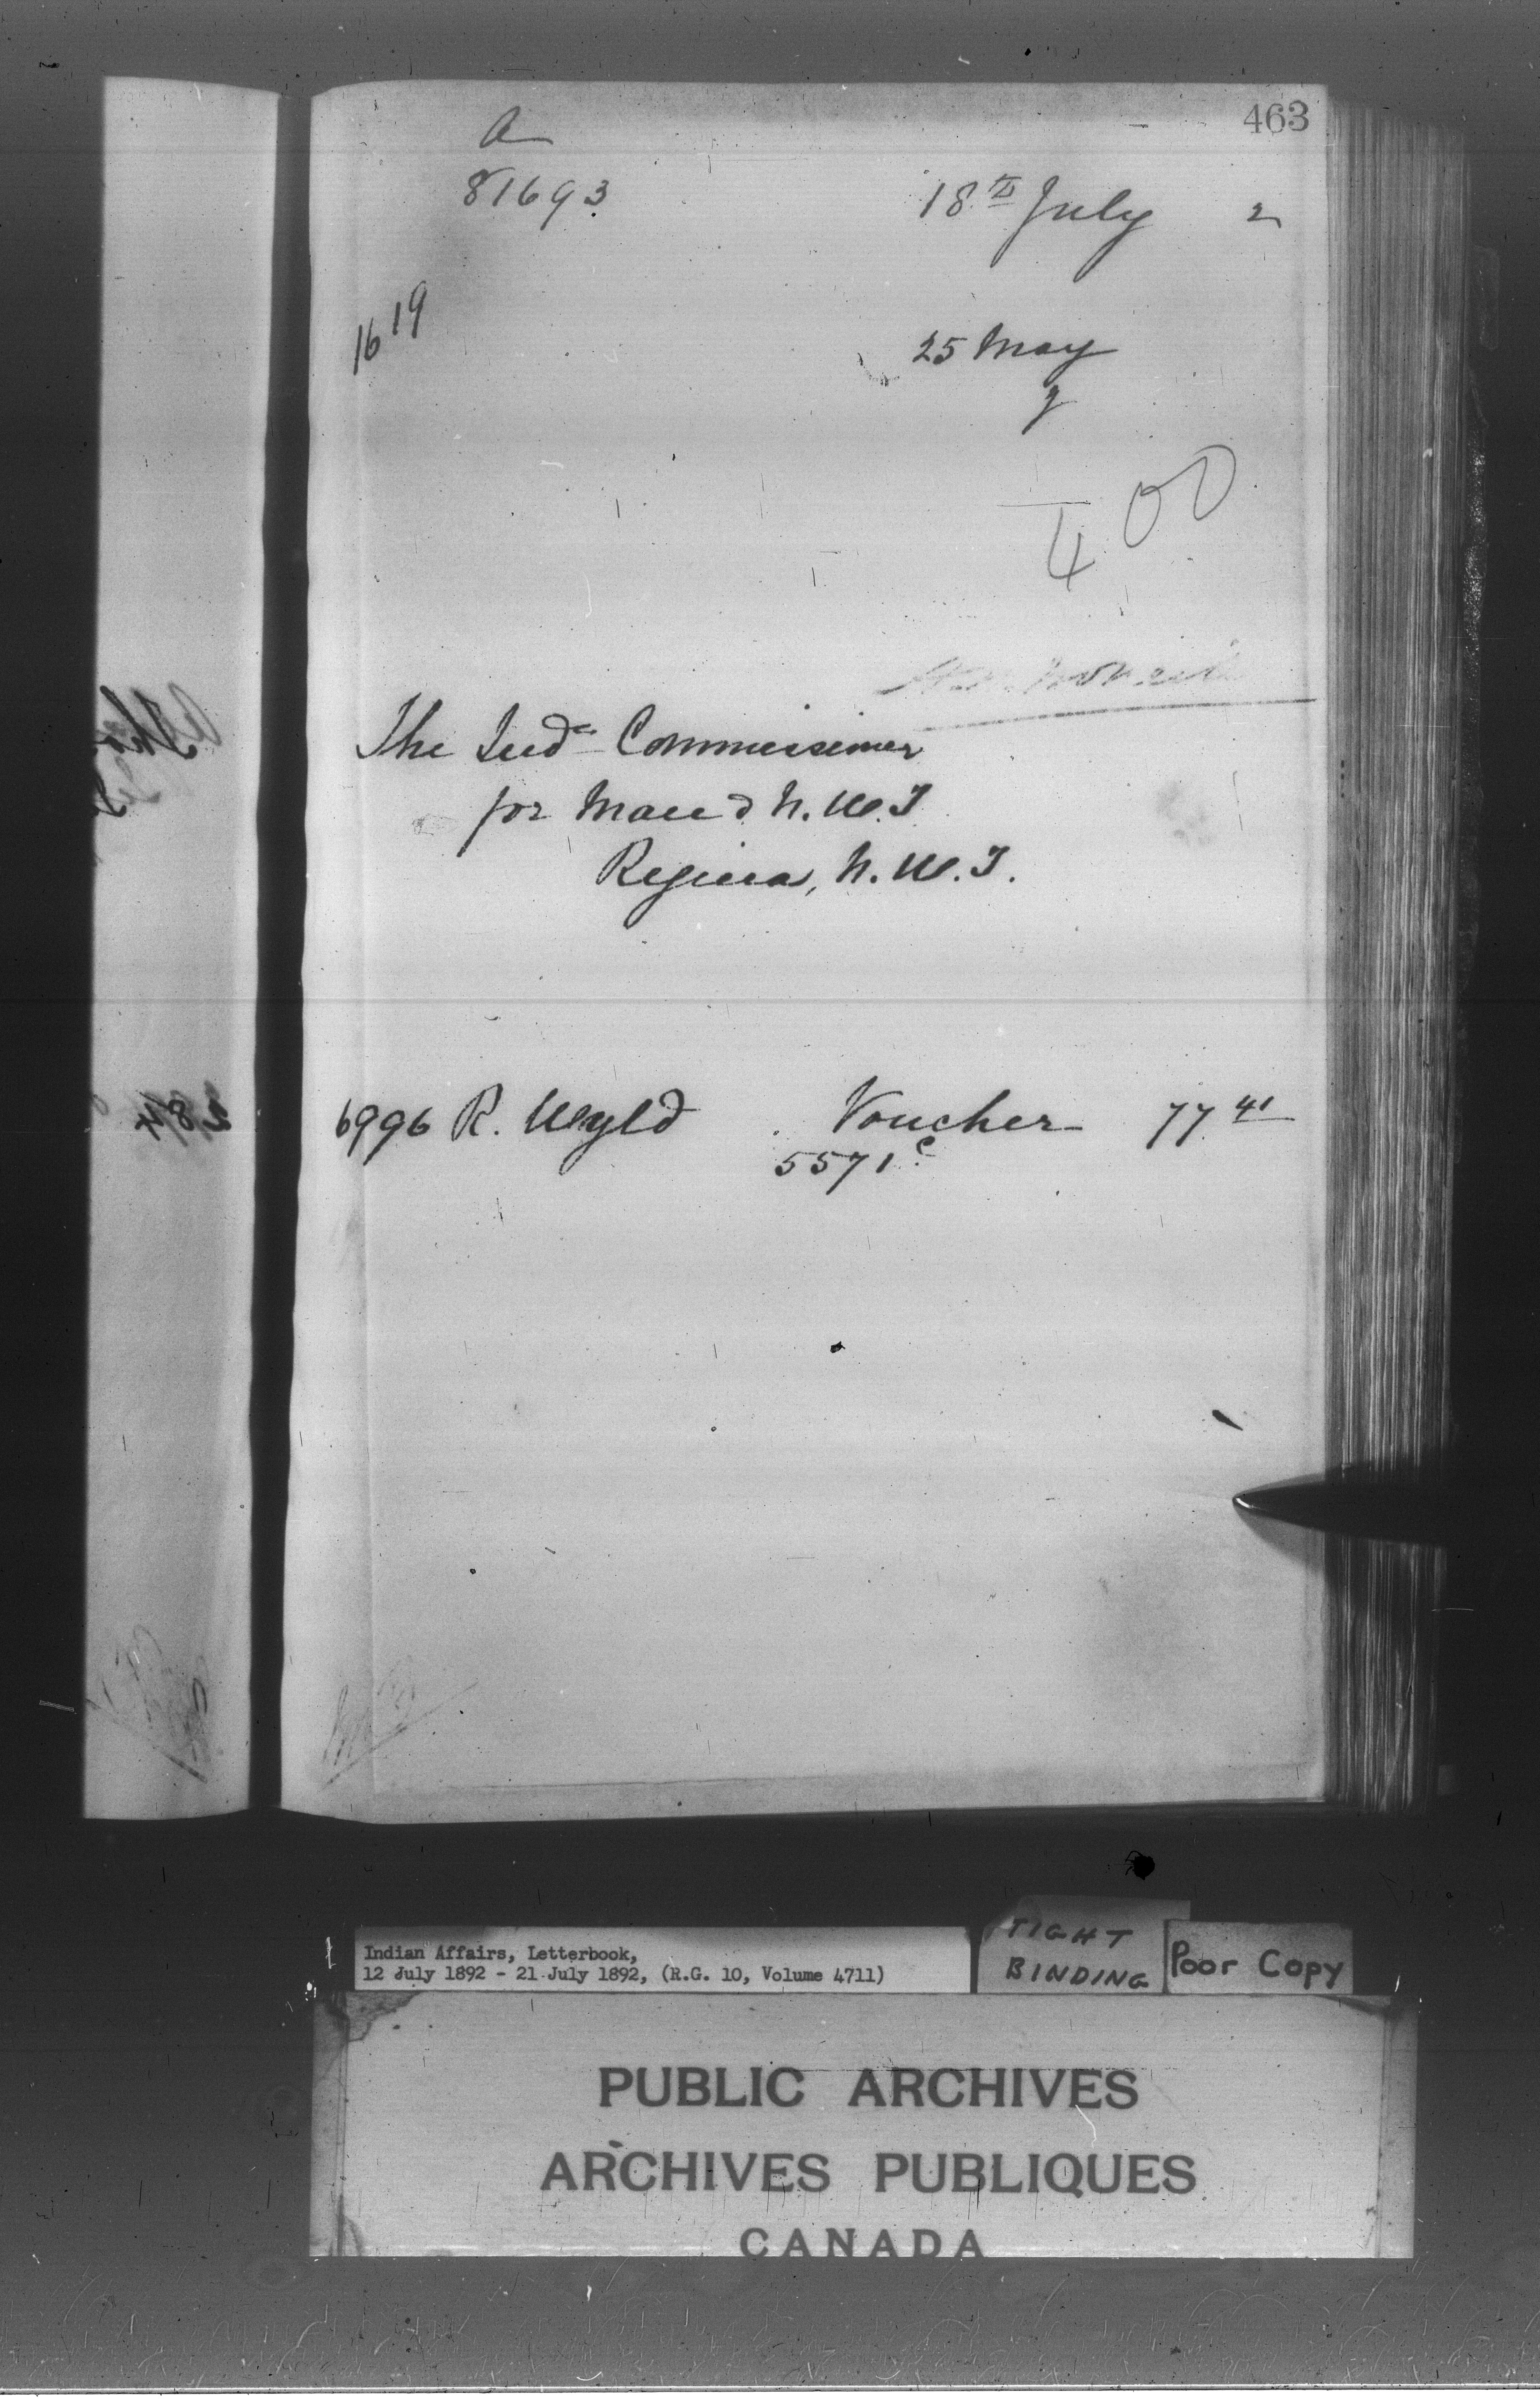 463
a
81693
18th July 2
1619
25 May
400
The Ind. Commissioner
for Man & N.W.T
Regina, N.W.T.
6996 R. Wyld Voucher 77 41
5571 c
Indian Affairs, Letterbook,
12 July 1892 - 21 July 1892, (R.G. 10, Volume 4711)
TIGHT
BINDING
Poor Copy
PUBLIC ARCHIVES
ARCHIVES PUBLIQUES
CANADA